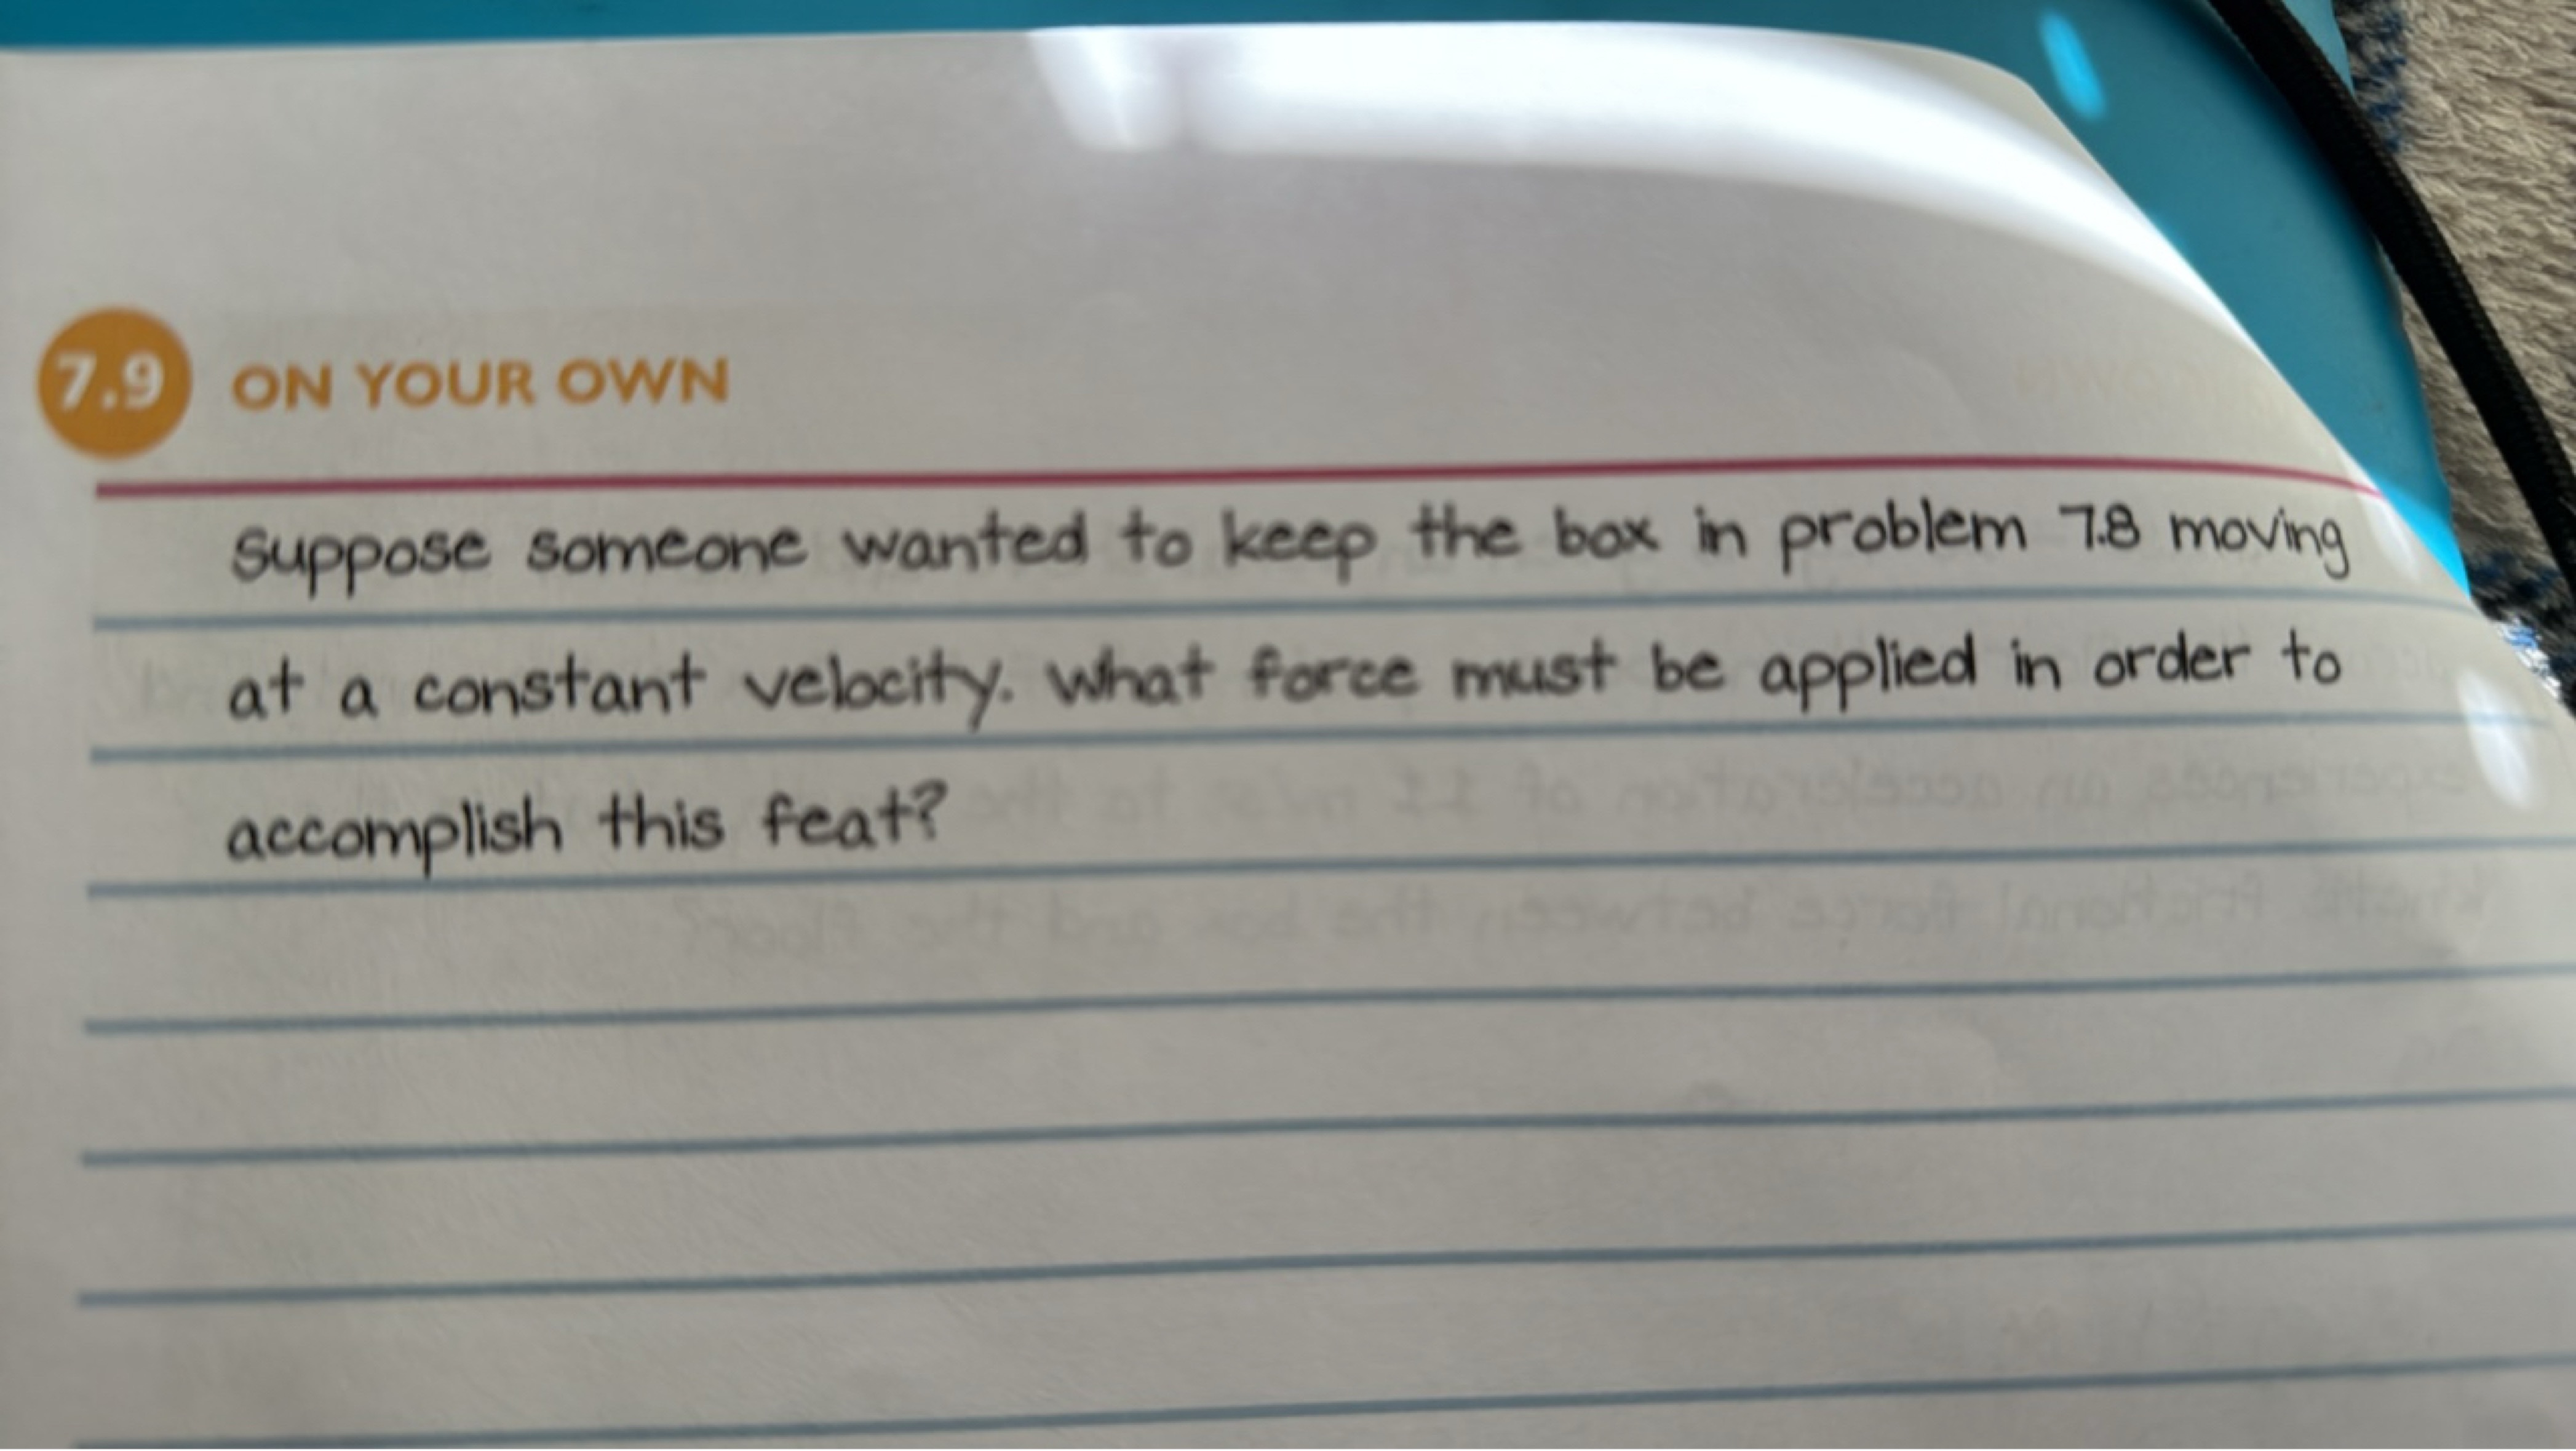 7.9 ON YOUR OWN
Suppose someone wanted to keep the box in problem 7.8 moving
at a constant velocity. What force must be applied in order to
accomplish this feat?